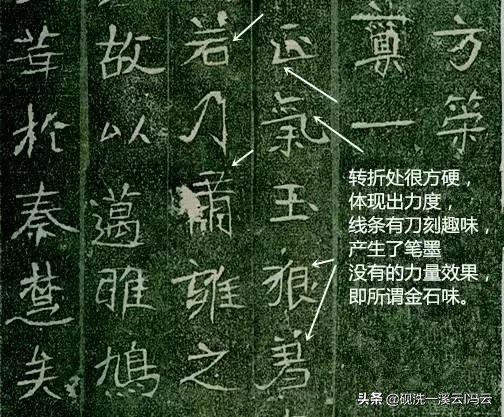 方策
一
正氣玉
若乃肅雍之
故以邁雎鳩
於秦楚矣
转折处很方硬，
体现出力度，
线条有刀刻趣味，
产生了笔墨
没有的力量效果，
即所谓金石味。
头条@砚洗一溪云l冯云